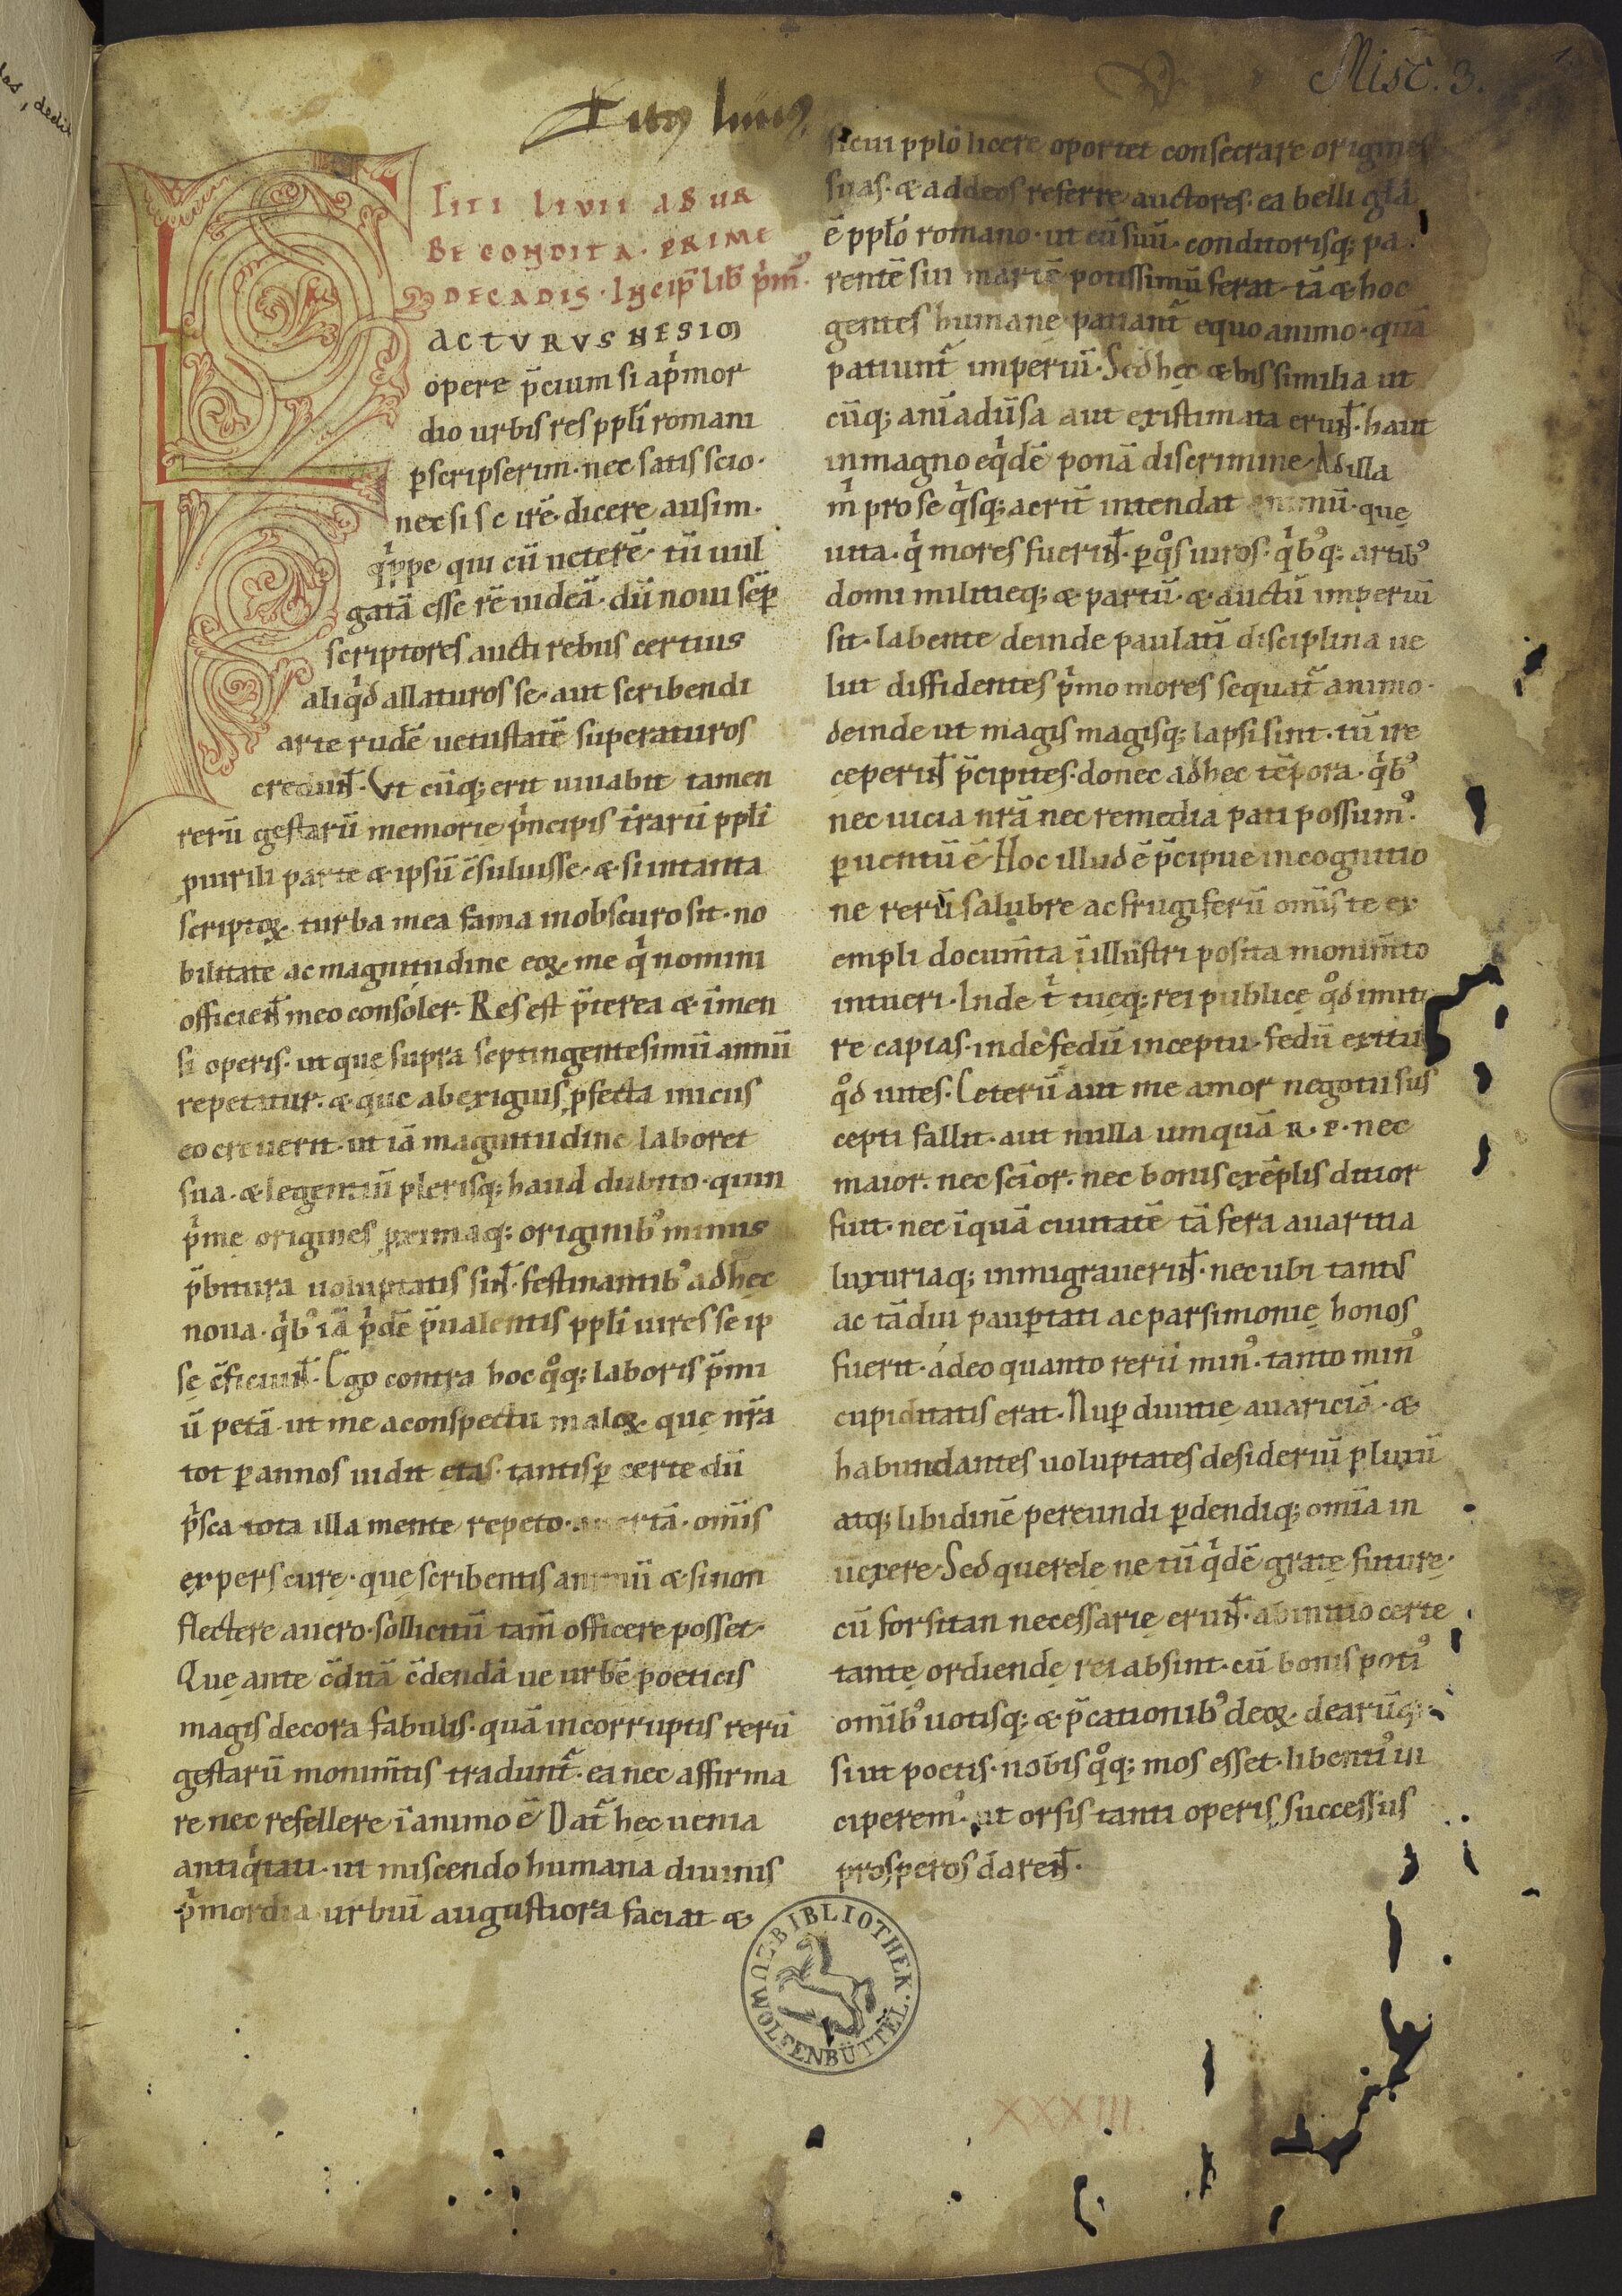 Misc. 3.
1.
Titus liuius
TITI LIVII AB UR
BE CONDITA. PRIME
DECADIS. INCIP̄ LIB̄ PͥMꝰ.
FACTVRVSNESIM
opere p̄cium si apͥmor
dio urbis res ppłi romani
ꝑscripserim. nec satis scio.
nec si scirē. dicere ausim.
qͥppe qui cū ueterē. tū uul
gatā esse rē uideā. dū noui sēꝑ
scriptores aucti rebus certius
aliqͥd allaturos se. aut scribendi
arte rudē uetustatē superaturos
credunt̄. Vt cūq; erit iuuabit tamen
rerū gestarū memorie pͥncipis t̄rarū ppłi
ꝓuirili parte & ipsū c̄suluisse. & si intanta
scriptoꝝ turba mea fama inobscuro sit. no
bilitate ac magnitudine eoꝝ me qͥ nomini
officient̄ meo consoler. Res est p̄terea & īmen
si operis. ut quę supra septingentesimū annū
repetatur. & que ab exiguis ꝓfecta iniciis
eo creuerit. ut iā magnitudine laboret
sua. & legentiū plerisq; haud dubito. quin
pͥmę origines proximaq; originibꝰ minus
p̄bitura uoluptatis sint̄. festinantibꝰ ad hec
noua. qͥbꝰ iā pͥdē p̄ualentis ppłi uires se ip
sę c̄ficiunt̄. Ego contra hoc qͦq; laboris p̄mi
ū petā. ut me a conspectu maloꝝ que nr̄a
tot ꝑ annos uidit etas. tantisꝑ certe dū
pͥsca tota illa mente repeto. auertā. omīs
expers curę. que scribentis animū & si non
flectere a uero. sollicitū tam̄ officere posset.
Quę ante c̄ditā c̄dendā ue urbē poeticis
magis decora fabulis. quā incorruptis rerū
gestarū monim̄tis tradunt᷑. ea nec affirma
re nec refellere ī animo ē. Dat᷑ hec uenia
antiqͥtati. ut miscendo humana diuinis
pͥmordia urbiū augustiora faciat. &
sicui ppło licere oportet consecrare origines
suas. & ad deos referre auctores. ea belli głā
ē ppło romano. ut cū suū. conditorisq; pa
rentē sui martē potissimū ferat. tā & hoc
gentes humane patiant᷑ equo animo. quā
patiunt᷑ imperiū. Sed hęc & his similia ut
cūq; anīaduersa aut existimata erunt̄. haut
in magno eqͥdē ponā discrimine. Ad illa
mͥ pro se qͥsq; acrit̄ intendat animū. quę
uita. qͥ mores fuerint̄. ꝑ qͦs uiros. qͥbꝰq; artibꝰ
domi militieq; & partū. & auctū imperiū
sit. labente deinde paulatī disciplina ue
lut diffidentes pͥmo mores sequat᷑ animo.
deinde ut magis magisq; lapsi sint. tū ire
ceperint̄ p̄cipites. donec ad hec tēpora. qͥbꝰ
nec uicia nr̄a nec remedia pati possumꝰ.
ꝑuentū ē. Hoc illud ē p̄cipue in cognitio
ne rerū salubre ac frugiferū omīs te ex
empli docum̄ta ī illustri posita monim̄to
intueri. Inde tͥ tueq; rei publicę qͦd imita
re capias. inde fedū inceptu. fedū exitu
qͦd uites. Ceterū aut me amor negotii sus
cepti fallit. aut nulla umquā R. P. nec
maior. nec sc̄ior. nec bonis exēplis ditior
fuit. nec ī quā ciuitatē tā sera auaritia
luxuriaq; inmigrauerint̄. nec ubi tantus
ac tādiu pauꝑtati ac parsimonię honos
fuerit. adeo quanto rerū minꝰ. tanto minꝰ
cupiditatis erat. Nuꝑ diuitię auariciā. &
habundantes uoluptates desideriū ꝑ luxū
atq; libidinē pereundi ꝑdendiq; omīa in
uexere. Sed querele ne tū qͥdē gratę future.
cū forsitan necessarię erunt̄. ab initio certe
tantę ordiendę rei absint. cū bonis potiꝰ
omībꝰ uotisq; & p̄cationibꝰ deoꝝ. dearūq;
si ut poetis. nobis qͦq; mos esset. libentiꝰ in
ciperemꝰ. ut orsis tanti operis successus
prosperos darent̄.
BIBLIOTHEK. ZU WOLFENBÜTTEL.
XXXIII.